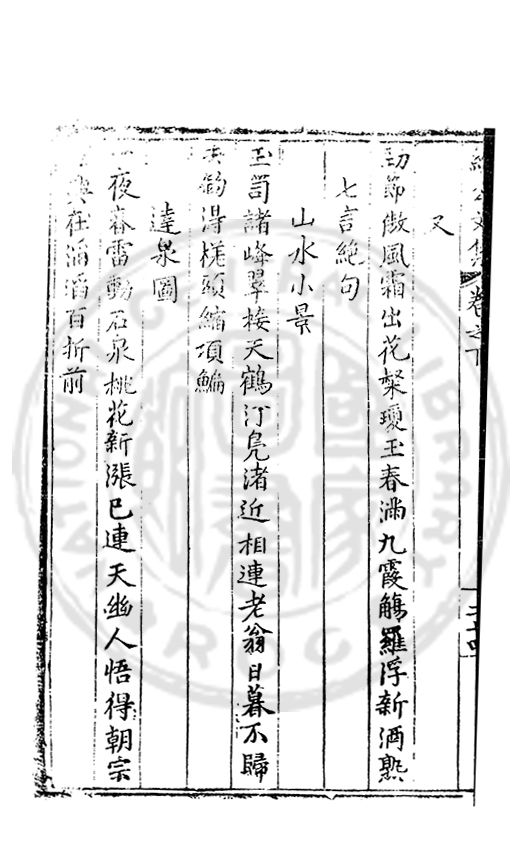 公文集 卷之下 二十四
又
勁節傲風霜出花粲瓊玉春滿九霞觴羅浮新酒熟
七言絶句
山水小景
玉笥諸峰翠接天鶴汀鳧渚近相連老翁日暮不歸
去釣得槎頭縮項鯿
達泉圖
一夜春雷動石泉桃花新漲已連天幽人悟得朝宗
興在滔滔百折前